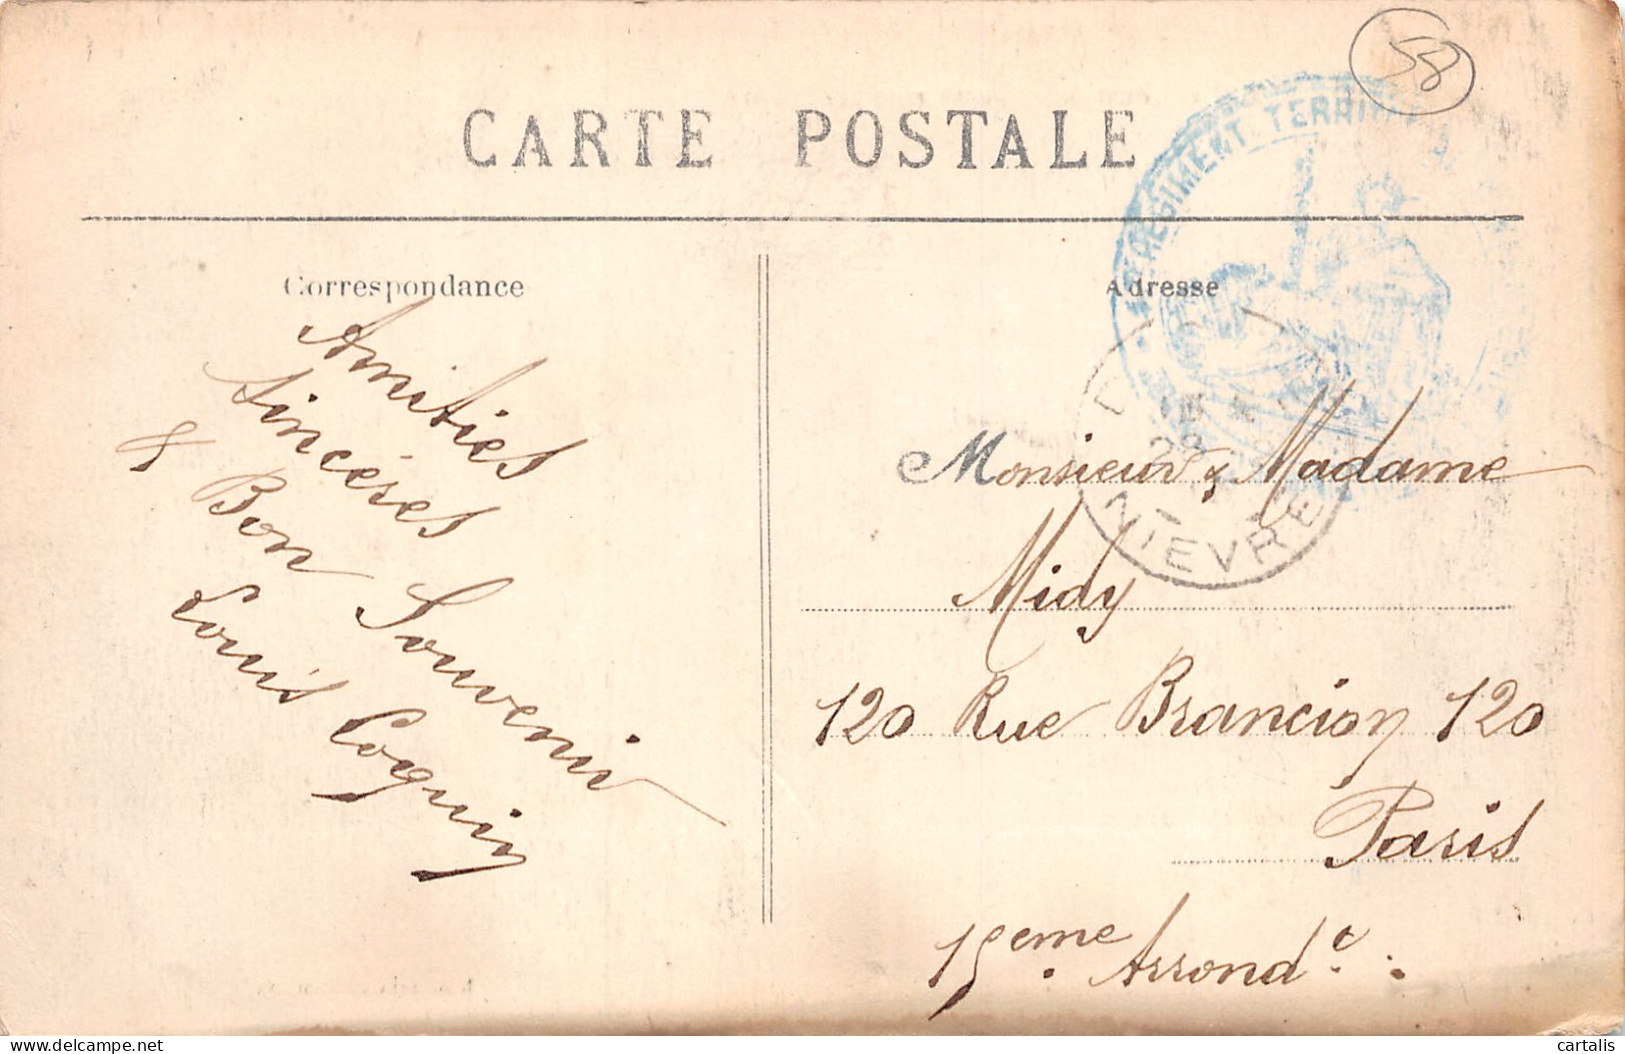 58
CARTE POSTALE
REGIMENT TERRIT
Correspondance
Amitiés
sincéres
& Bon Souvenir
Louis Coquin
Adresse
NIEVRE
Monsieur & Madame
Midy
120 Rue Brancion 120
Paris
15eme Arrondt.
delcampe.net
cartalis